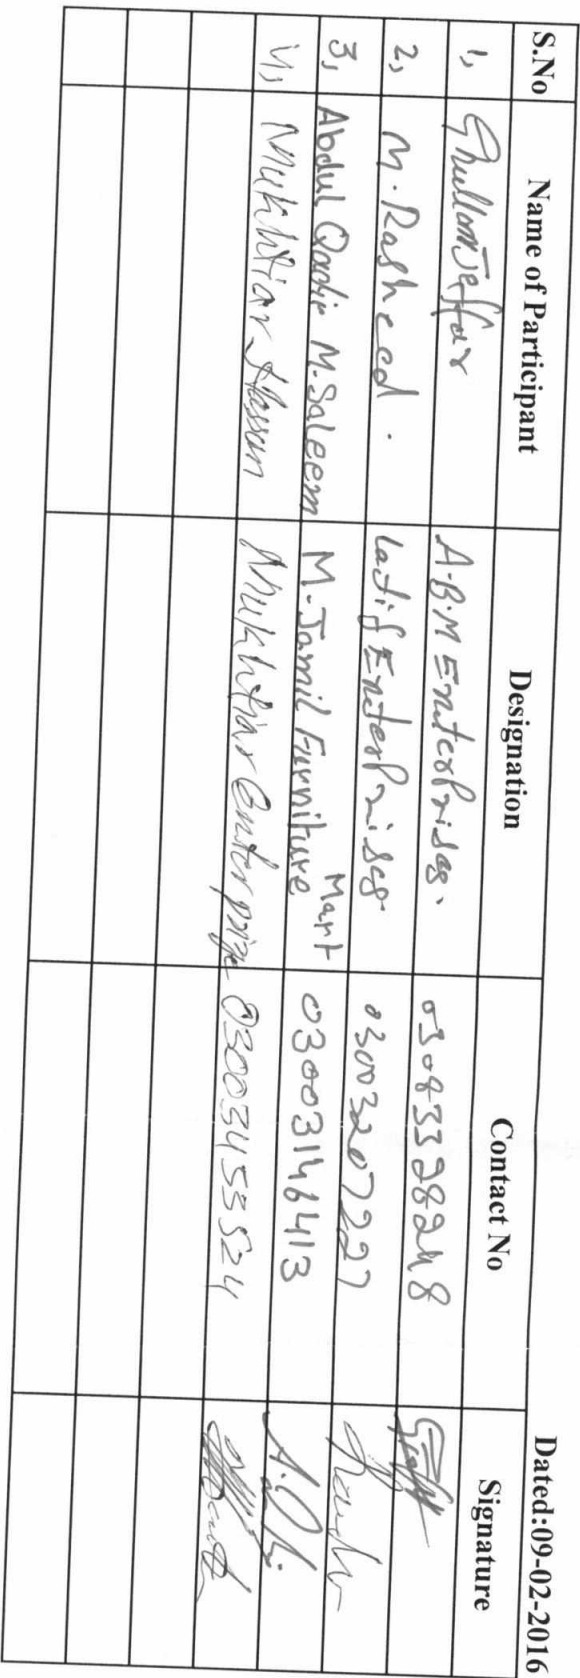 Dated:09-02-2016
S.No Name of Participant Designation Contact No Signature
1, Ghullam Jaffar A.B.M Enterprises. 03083328248
2, M. Rasheed. Latif Enterprises 03003207227
3, Abdul Qadir M.Saleem M. Jamil Furniture Mart 03003146413
4, Mukhtiar Hassan Mukhtiar Enterprize 03003453524